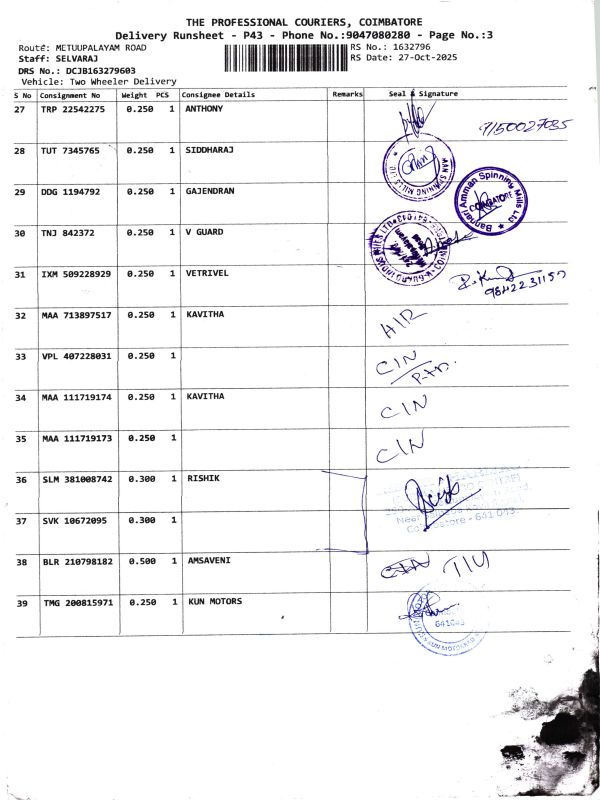 THE PROFESSIONAL COURIERS, COIMBATORE
Delivery Runsheet - P43 - Phone No.:9047080280 - Page No.:3
Route: METUUPALAYAM ROAD RS No.: 1632796
Staff: SELVARAJ RS Date: 27-Oct-2025
DRS No.: DCJB163279603
Vehicle: Two Wheeler Delivery
S No Consignment No Weight PCS Consignee Details Remarks Seal & Signature
27 TRP 22542275 0.250 1 ANTHONY
9150027035
28 TUT 7345765 0.250 1 SIDDHARAJ
29 DDG 1194792 0.250 1 GAJENDRAN
Bannari Amman Spinning Mills Ltd
COIMBATORE
30 TNJ 842372 0.250 1 V GUARD
31 IXM 509228929 0.250 1 VETRIVEL
9842231157
32 MAA 713897517 0.250 1 KAVITHA AIR
33 VPL 407228031 0.250 1 CIN
34 MAA 111719174 0.250 1 KAVITHA CIN
35 MAA 111719173 0.250 1 CIN
36 SLM 381008742 0.300 1 RISHIK
37 SVK 10672095 0.300 1
Coimbatore - 641 043.
38 BLR 210798182 0.500 1 AMSAVENI CIN
39 TMG 200815971 0.250 1 KUN MOTORS